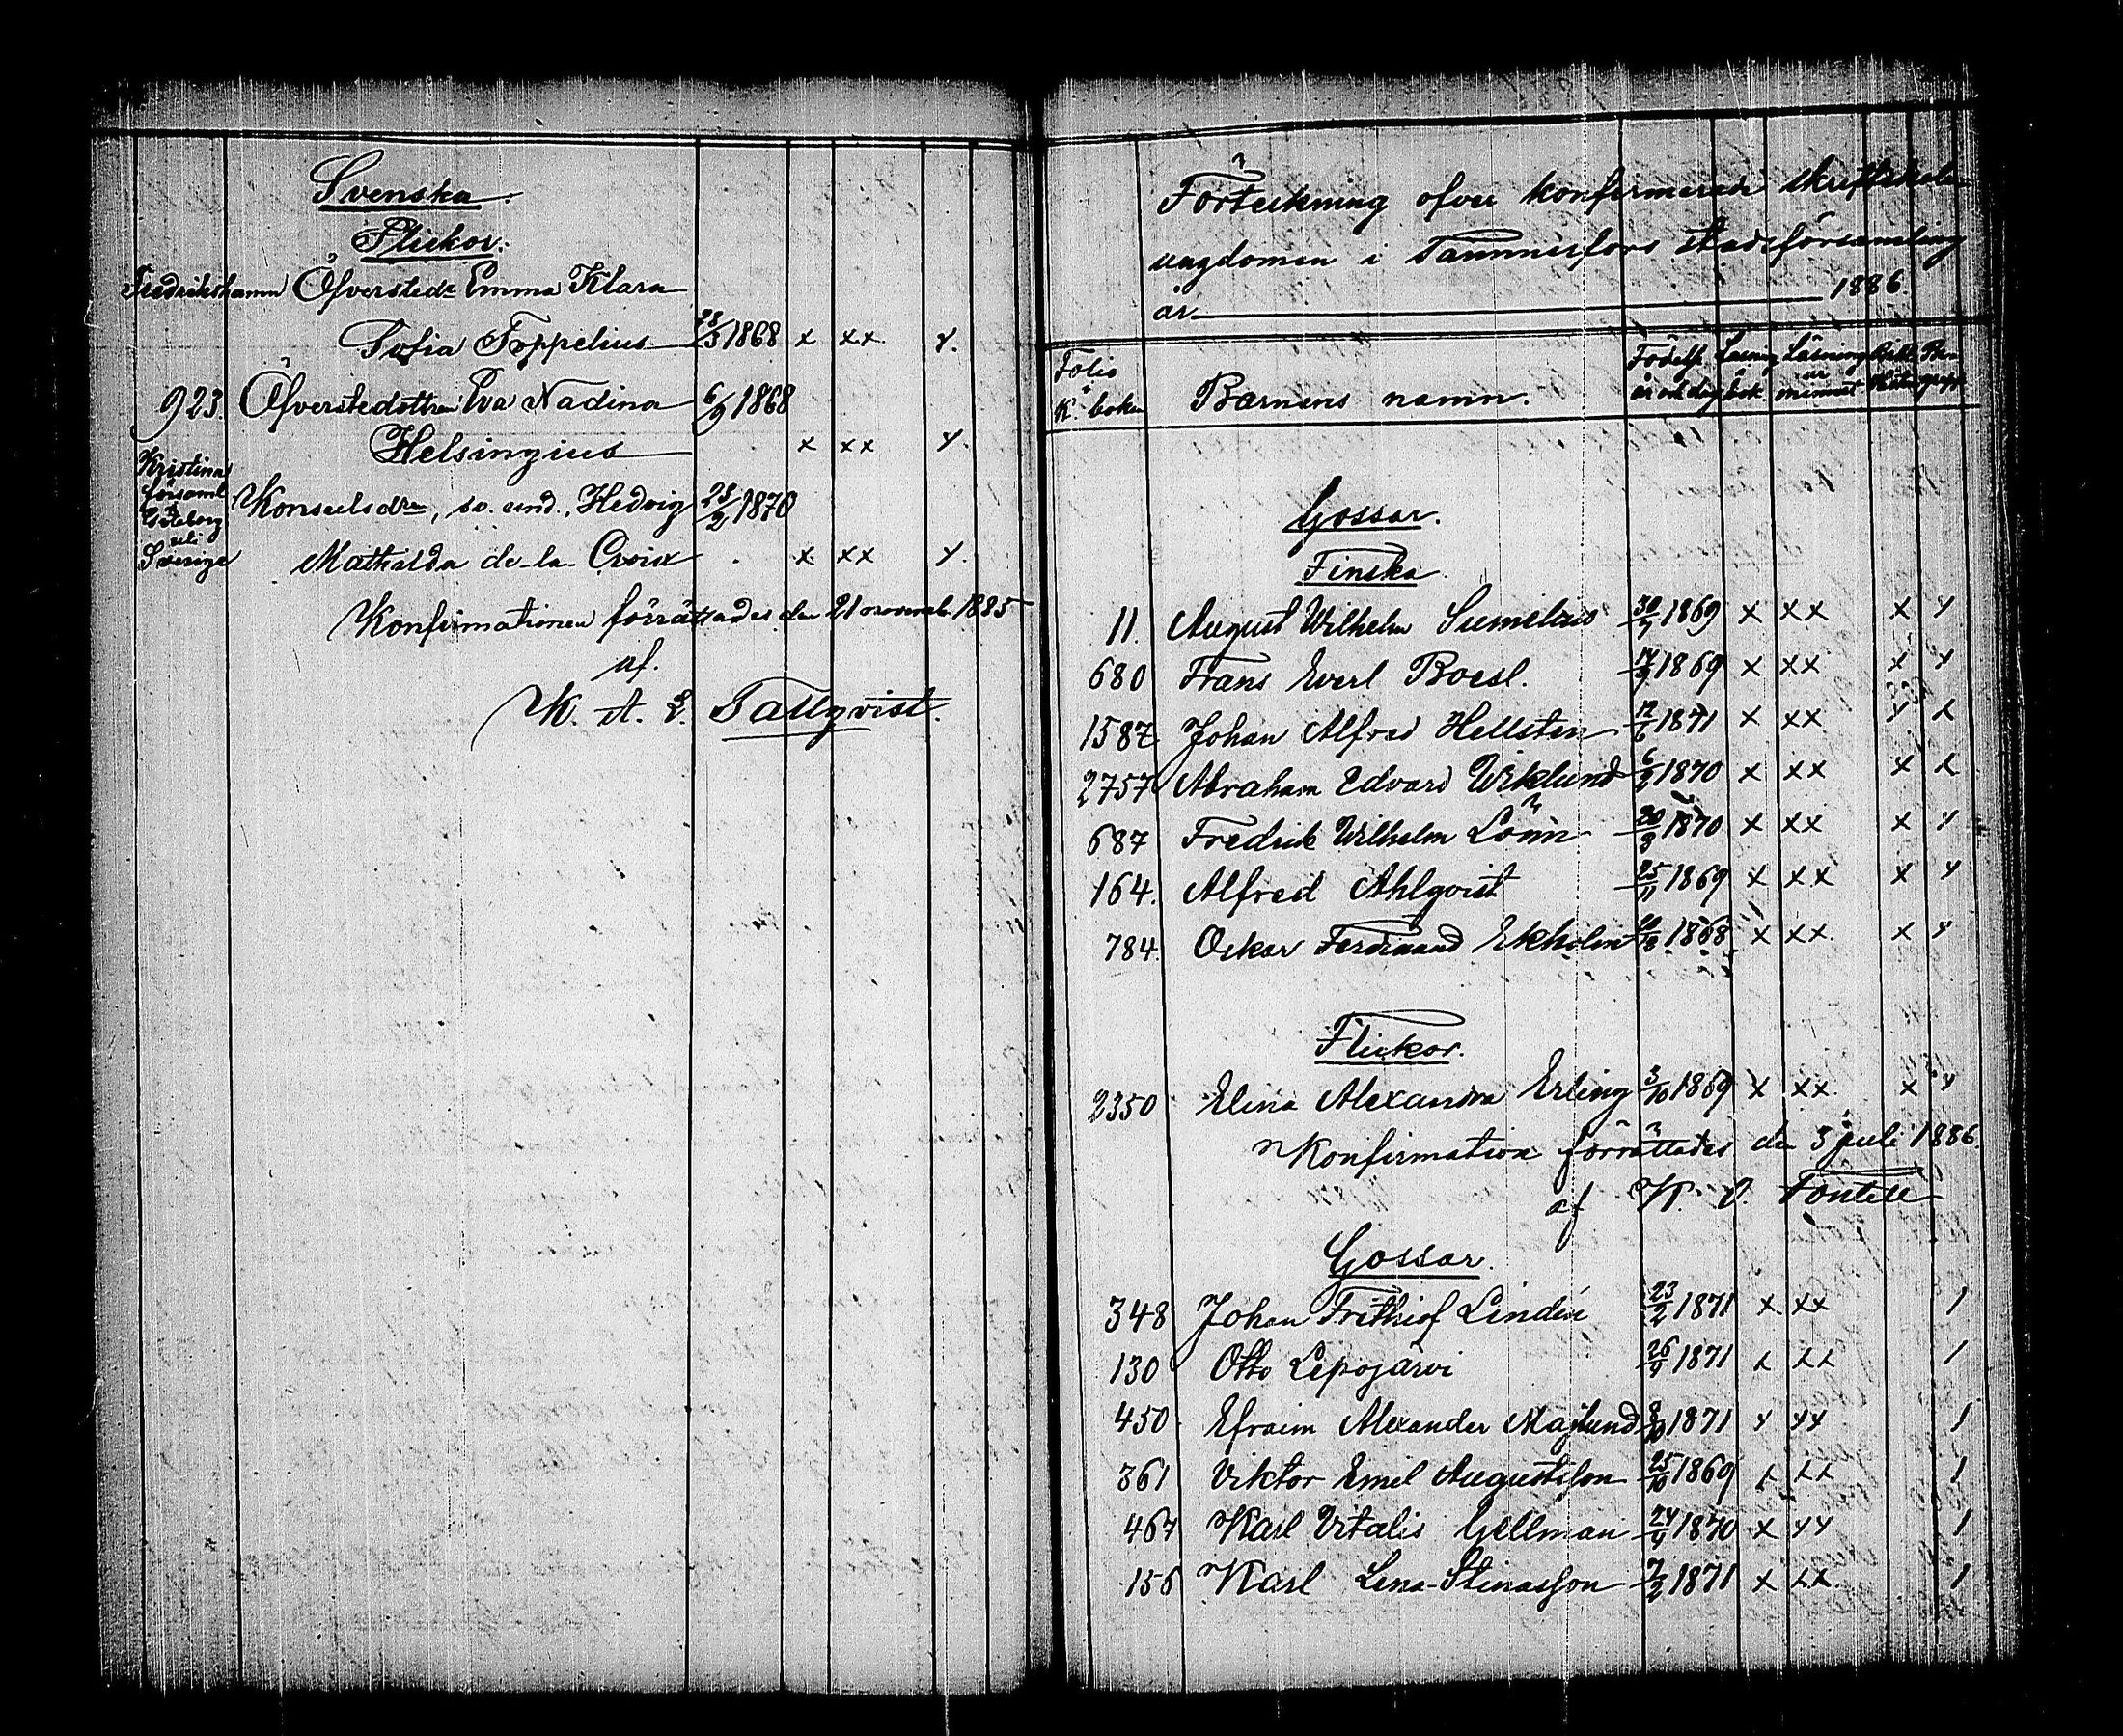 Svenska
Flickor:
Fredrikshamn Öfverstedr Emma Klara
Sofia Toppelius 23/3 1868 x xx x.
923. Öfverstedottren Eva Nadina 6/9 1868
Helsingius x xx x.
Kristina
församl
i
Göteborg
uti
Sverige
Konsulsdrn, sv. und., Hedvig 23/2 1870
Mathilda de-la-Croix x xx x.
Konfirmationen förrättades den 21 novemb. 1885
af.
K. A. E. Tallqvist.
Förteckning öfver konfirmerade skriftskole
ungdomen i Tammerfors stadsförsamling
år 1886.
Folio
i
K. boken
Barnens namn.
Födelse
år och dag
Läsning
bok
Läsning
ur
minnet
Gossar.
Finska.
11. August Wilhelm Sumelius 30/7 1869 x xx x x
680 Frans Evert Boesl. 1869 x xx x x
1587 Johan Alfred Hellsten 12/6 1871 x xx x x
2757 Abraham Edvard Wiklund 6/2 1870 x xx x x
687 Fredrik Wilhelm Lönn 20/3 1870 x xx x x
164. Alfred Ahlqvist 25/11 1869 x xx x x
784. Oskar Ferdinand Ekholm 1868 x xx x x
Flickor.
2350 Elina Alexandra Erling 3/10 1869 x xx x x
Konfirmation förrättades den 3 juli 1886.
af K. V. Fontell
Gossar.
348 Johan Frithiof Lindén 23/2 1871 x xx 1
130 Otto Lepojärvi 26/4 1871 x xx 1
450 Efraim Alexander Majlund 8/10 1871 x xx 1
361 Viktor Emil Augustsson 25/10 1869 x xx 1
467 Karl Vitalis Gellman 24/4 1870 x xx 1
156 Karl Lena-Stinasson 7/2 1871 x xx 1